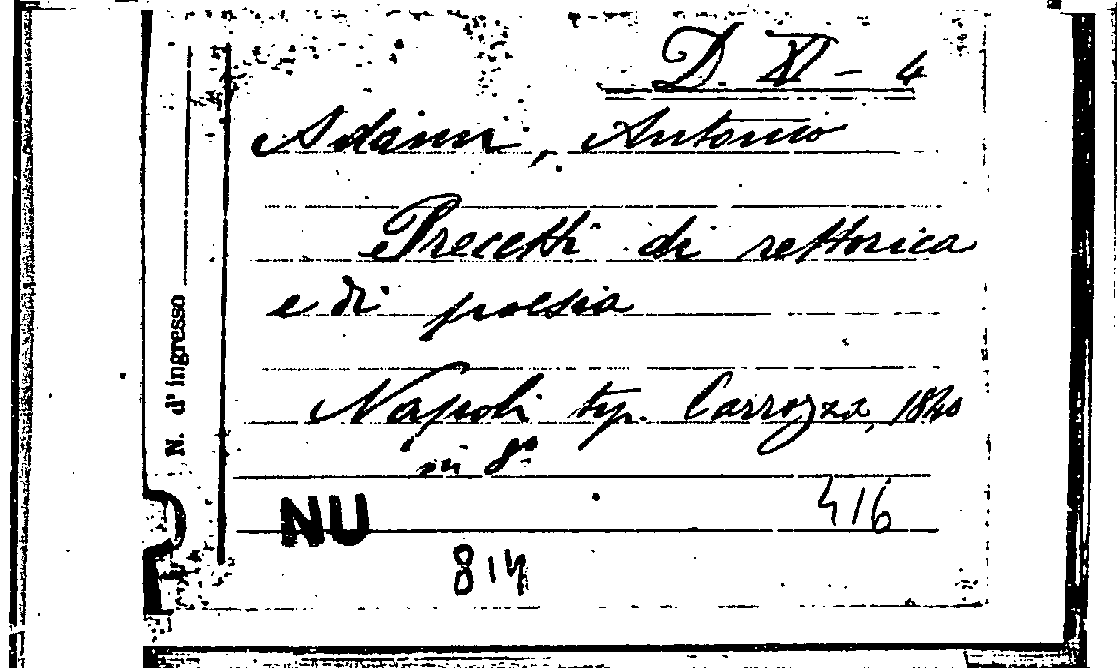 D. XI - 4
Adami, Antonio
Precetti di rettorica
e di poesia
Napoli tip. Carrozza, 1840
in 8°
416
NU
814
N. d'ingresso